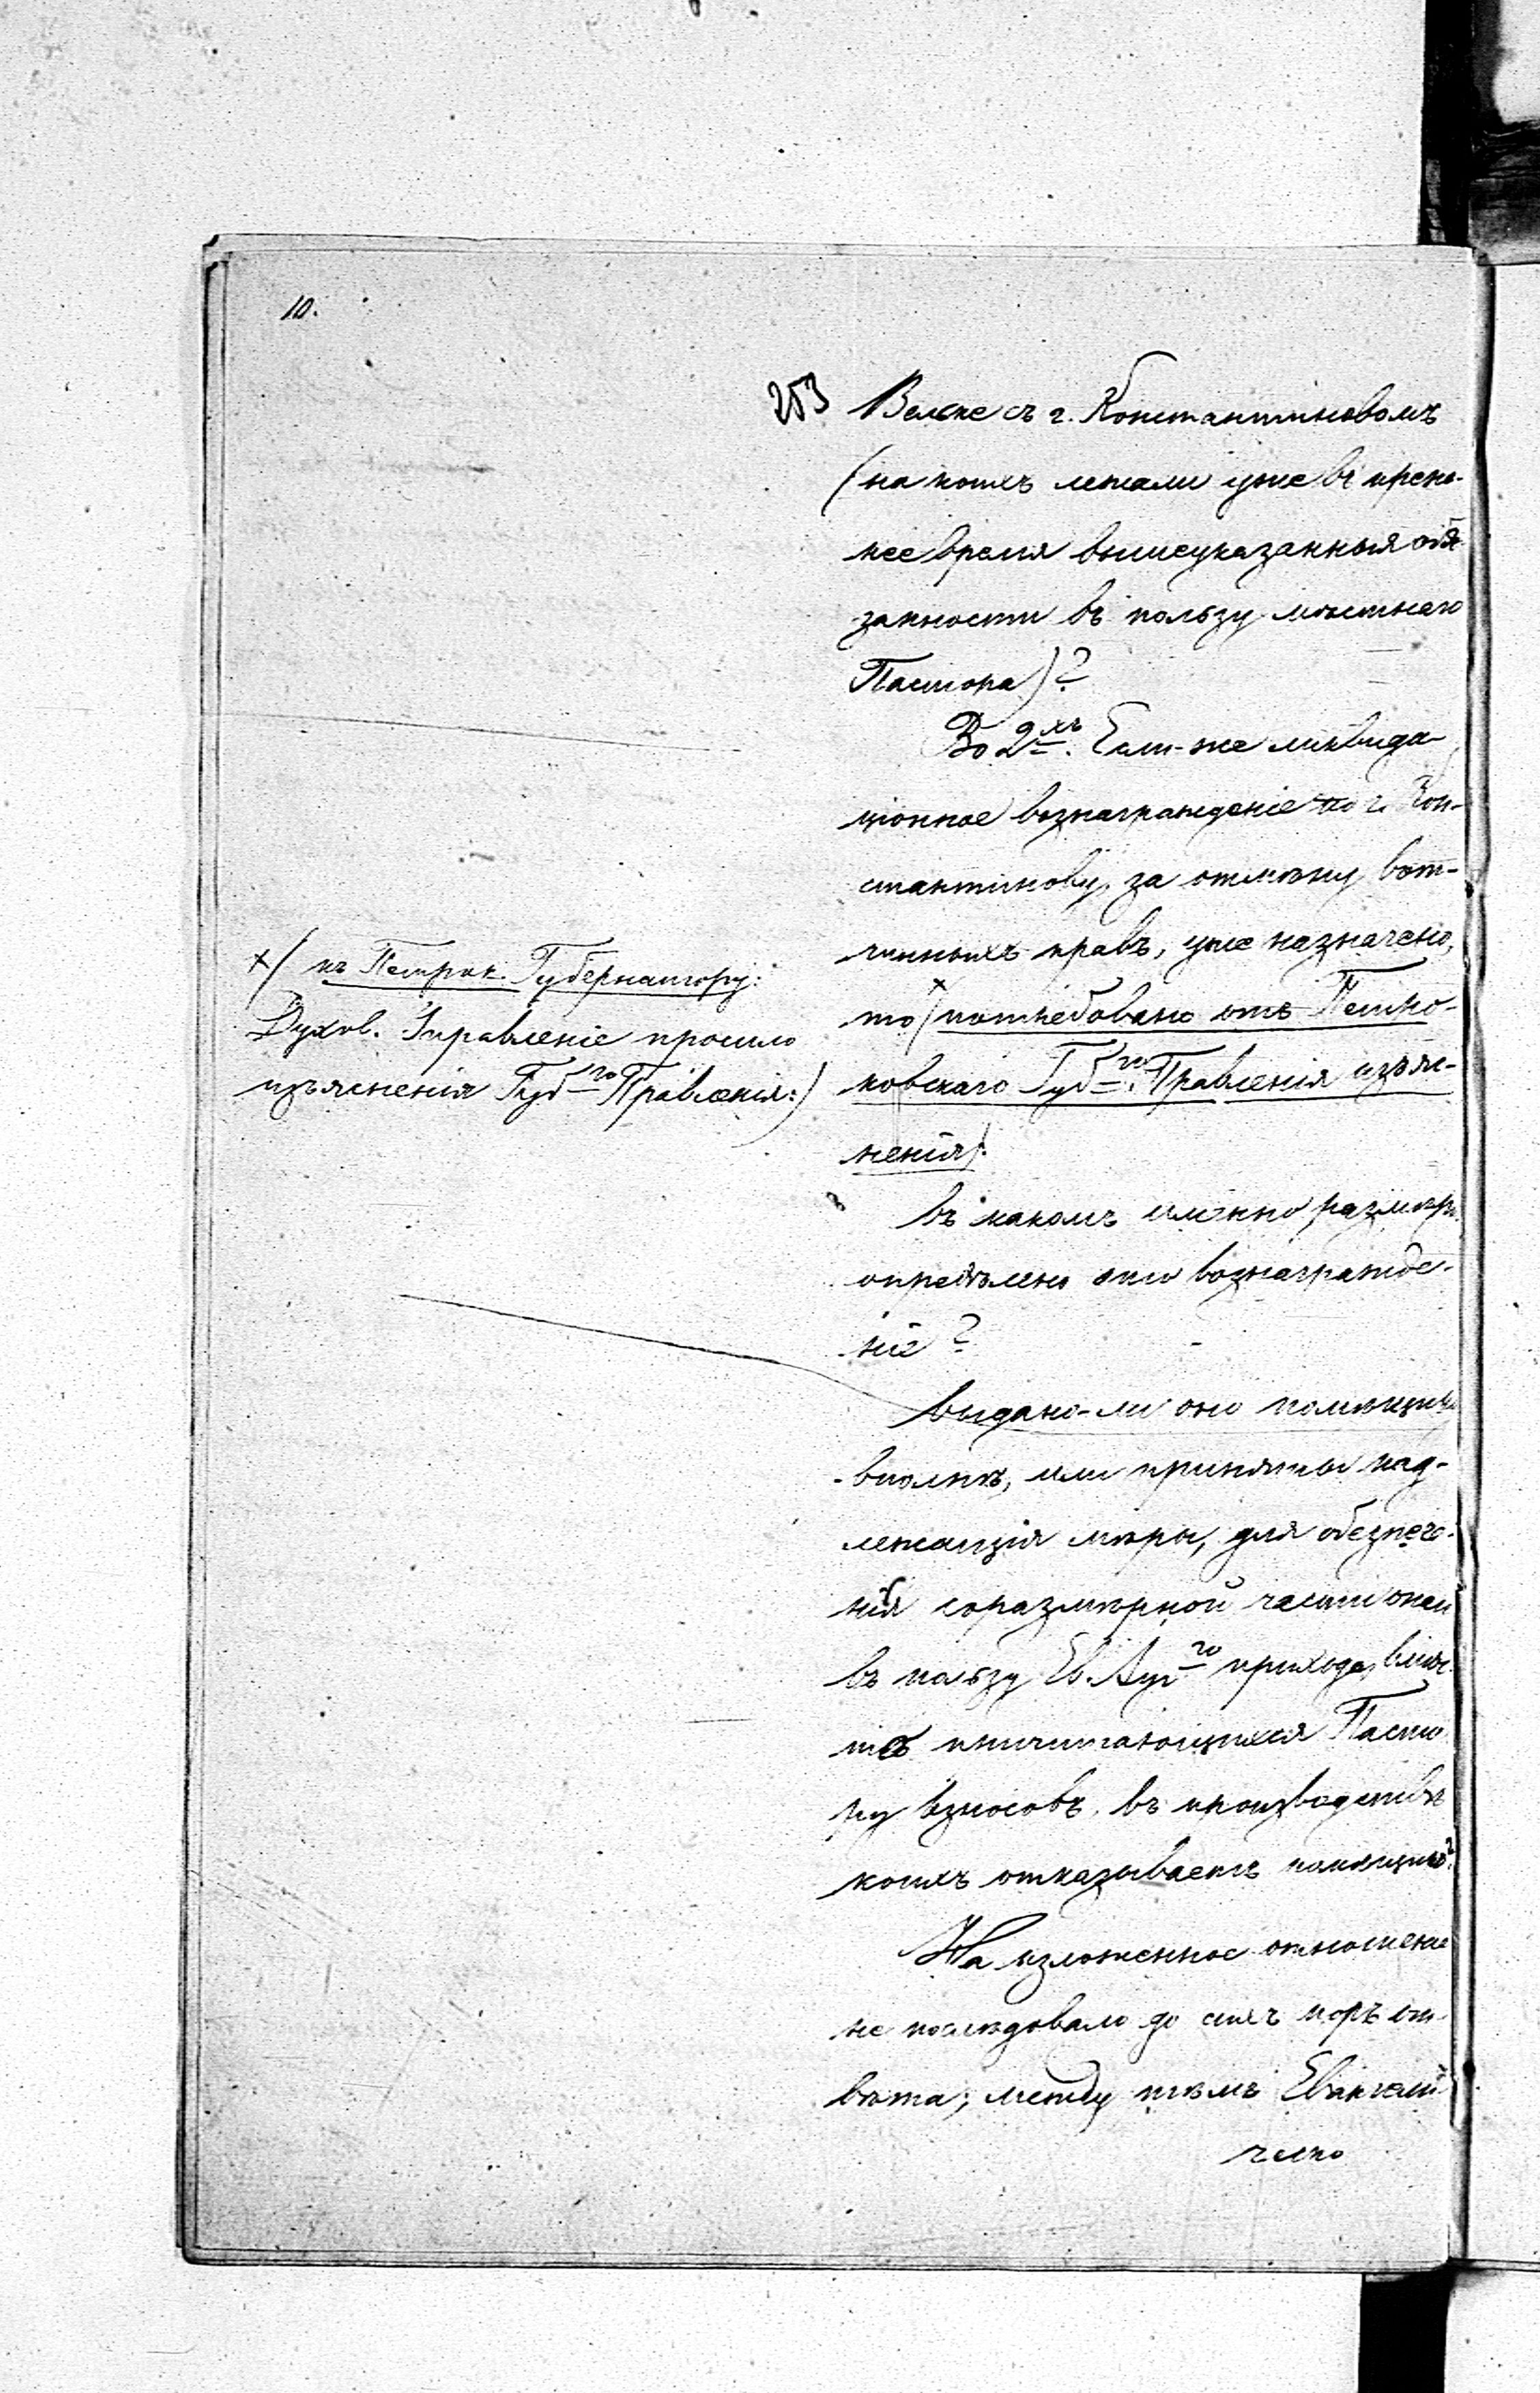 10.
253
Велке съ г. Константиновомъ
(на коихъ лежали уже въ преж-
нее время вышеуказанныя обя-
занности въ пользу мѣстнаго
Пастора)?
Во 2хъ. Если-же ликвида-
ціонное вознагражденіе по г. Кон-
стантинову, за отмѣну вот-
чинныхъ правъ, уже назначено,
то х/ потребовано отъ Петро-
ковскаго Губго. Правленія изъяс-
ненія):
въ какомъ именно размѣрѣ
опредѣлено это вознагражде-
ніе?
выдано-ли оно помѣщику
вполнѣ, или приняты над-
лежащія мѣры, для обезпече-
нія соразмѣрной части онаго
въ пользу Ев. Ауго прихода, вмѣс-
то причитающихся Пасто-
ру взносовъ, въ производствѣ
коихъ отказываетъ помѣщикъ?
На изложенное отношеніе
не послѣдовало до сихъ поръ от-
вѣта; между тѣмъ Евангели-
ческо
х/ къ Петрок. Губернатору:
Духов. Управленіе просило
изъясненія Губго Правленія:)